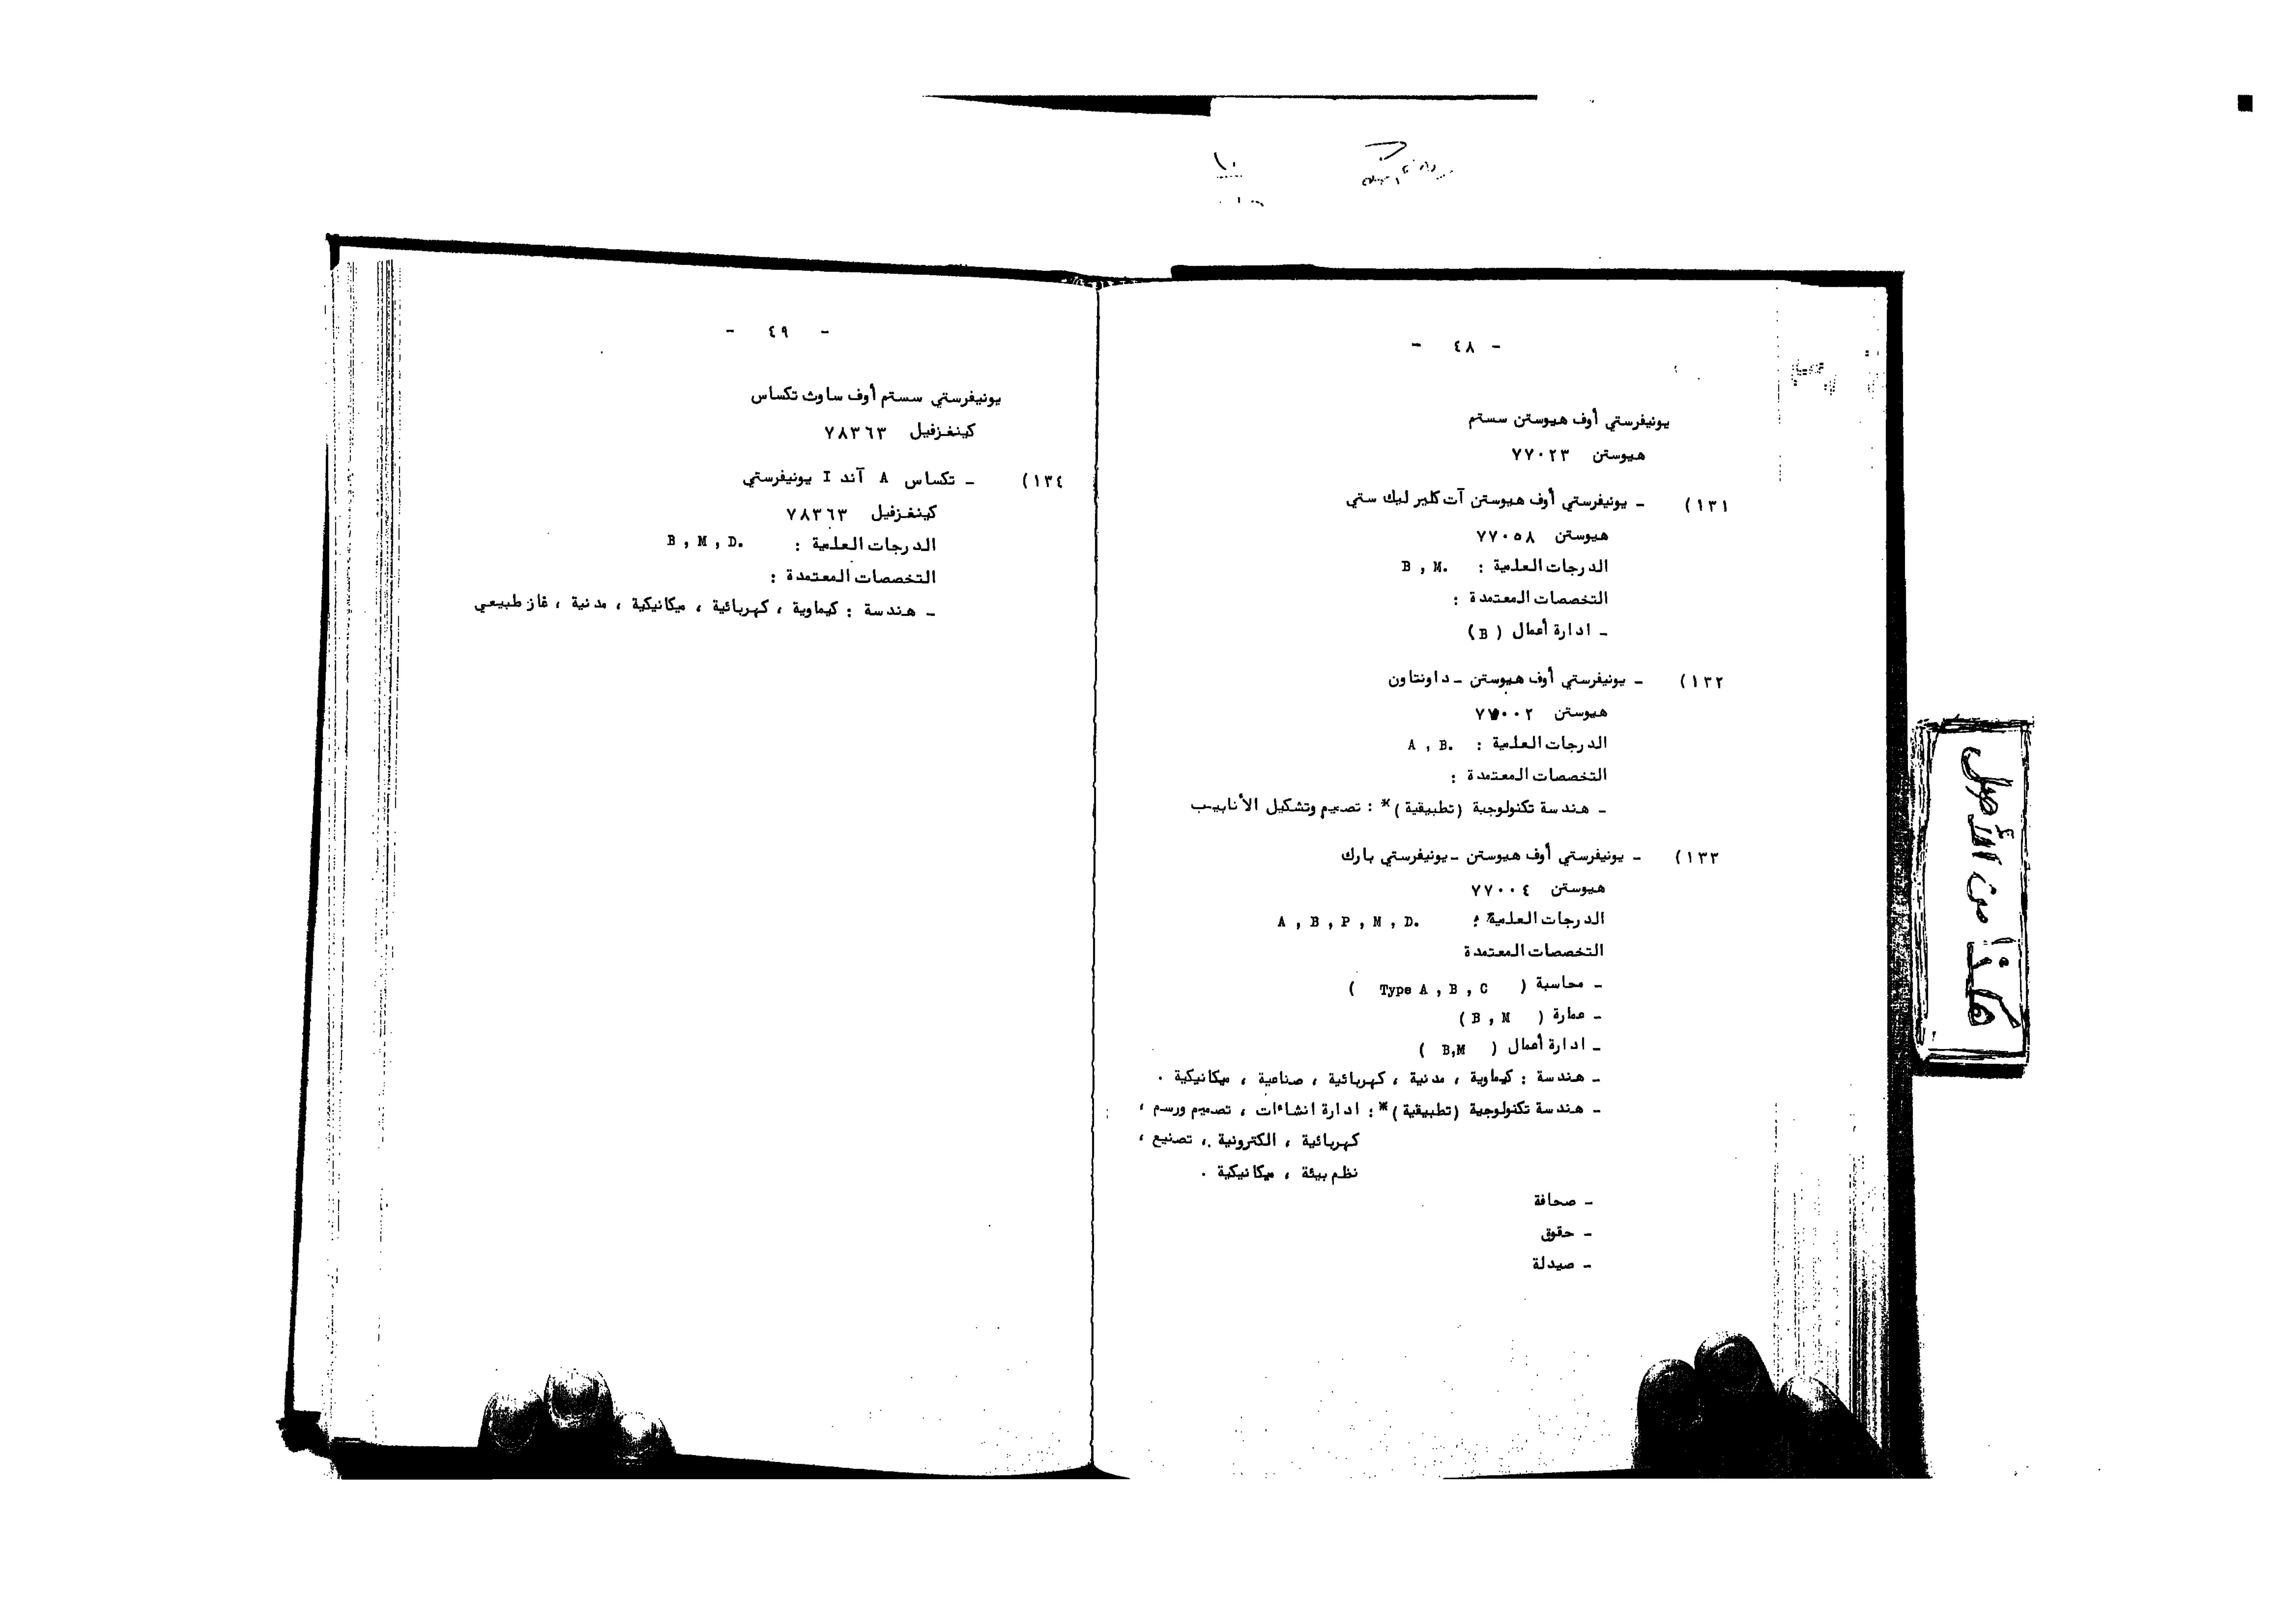 - ٤٨ -
يونيفرستي أوف هيوستن سستم
هيوستن ٧٧٠٢٣
١٣١) - يونيفرستي أوف هيوستن آت كلير ليك ستي
هيوستن ٧٧٠٥٨
الدرجات العلمية : B , M.
التخصصات المعتمدة :
- ادارة أعمال ( B )
١٣٢) - يونيفرستي أوف هيوستن - داونتاون
هيوستن ٧٧٠٠٢
الدرجات العلمية : A , B.
التخصصات المعتمدة :
- هندسة تكنولوجية (تطبيقية)* : تصميم وتشكيل الأنابيب
١٣٣) - يونيفرستي أوف هيوستن - يونيفرستي بارك
هيوستن ٧٧٠٠٤
الدرجات العلمية : A , B , P , M , D.
التخصصات المعتمدة
- محاسبة ( Type A , B , C )
- عمارة ( B , M )
- ادارة أعمال ( B,M )
- هندسة : كيماوية ، مدنية ، كهربائية ، صناعية ، ميكانيكية .
- هندسة تكنولوجية (تطبيقية)* : ادارة انشاءات ، تصميم ورسم ،
كهربائية ، الكترونية ، تصنيع ،
نظم بيئة ، ميكانيكية .
- صحافة
- حقوق
- صيدلة
هكذا من الأصل
- ٤٩ -
يونيفرستي سستم أوف ساوث تكساس
كينغزفيل ٧٨٣٦٣
١٣٤) - تكساس A آند I يونيفرستي
كينغزفيل ٧٨٣٦٣
الدرجات العلمية : B , M , D.
التخصصات المعتمدة :
- هندسة : كيماوية ، كهربائية ، ميكانيكية ، مدنية ، غاز طبيعي